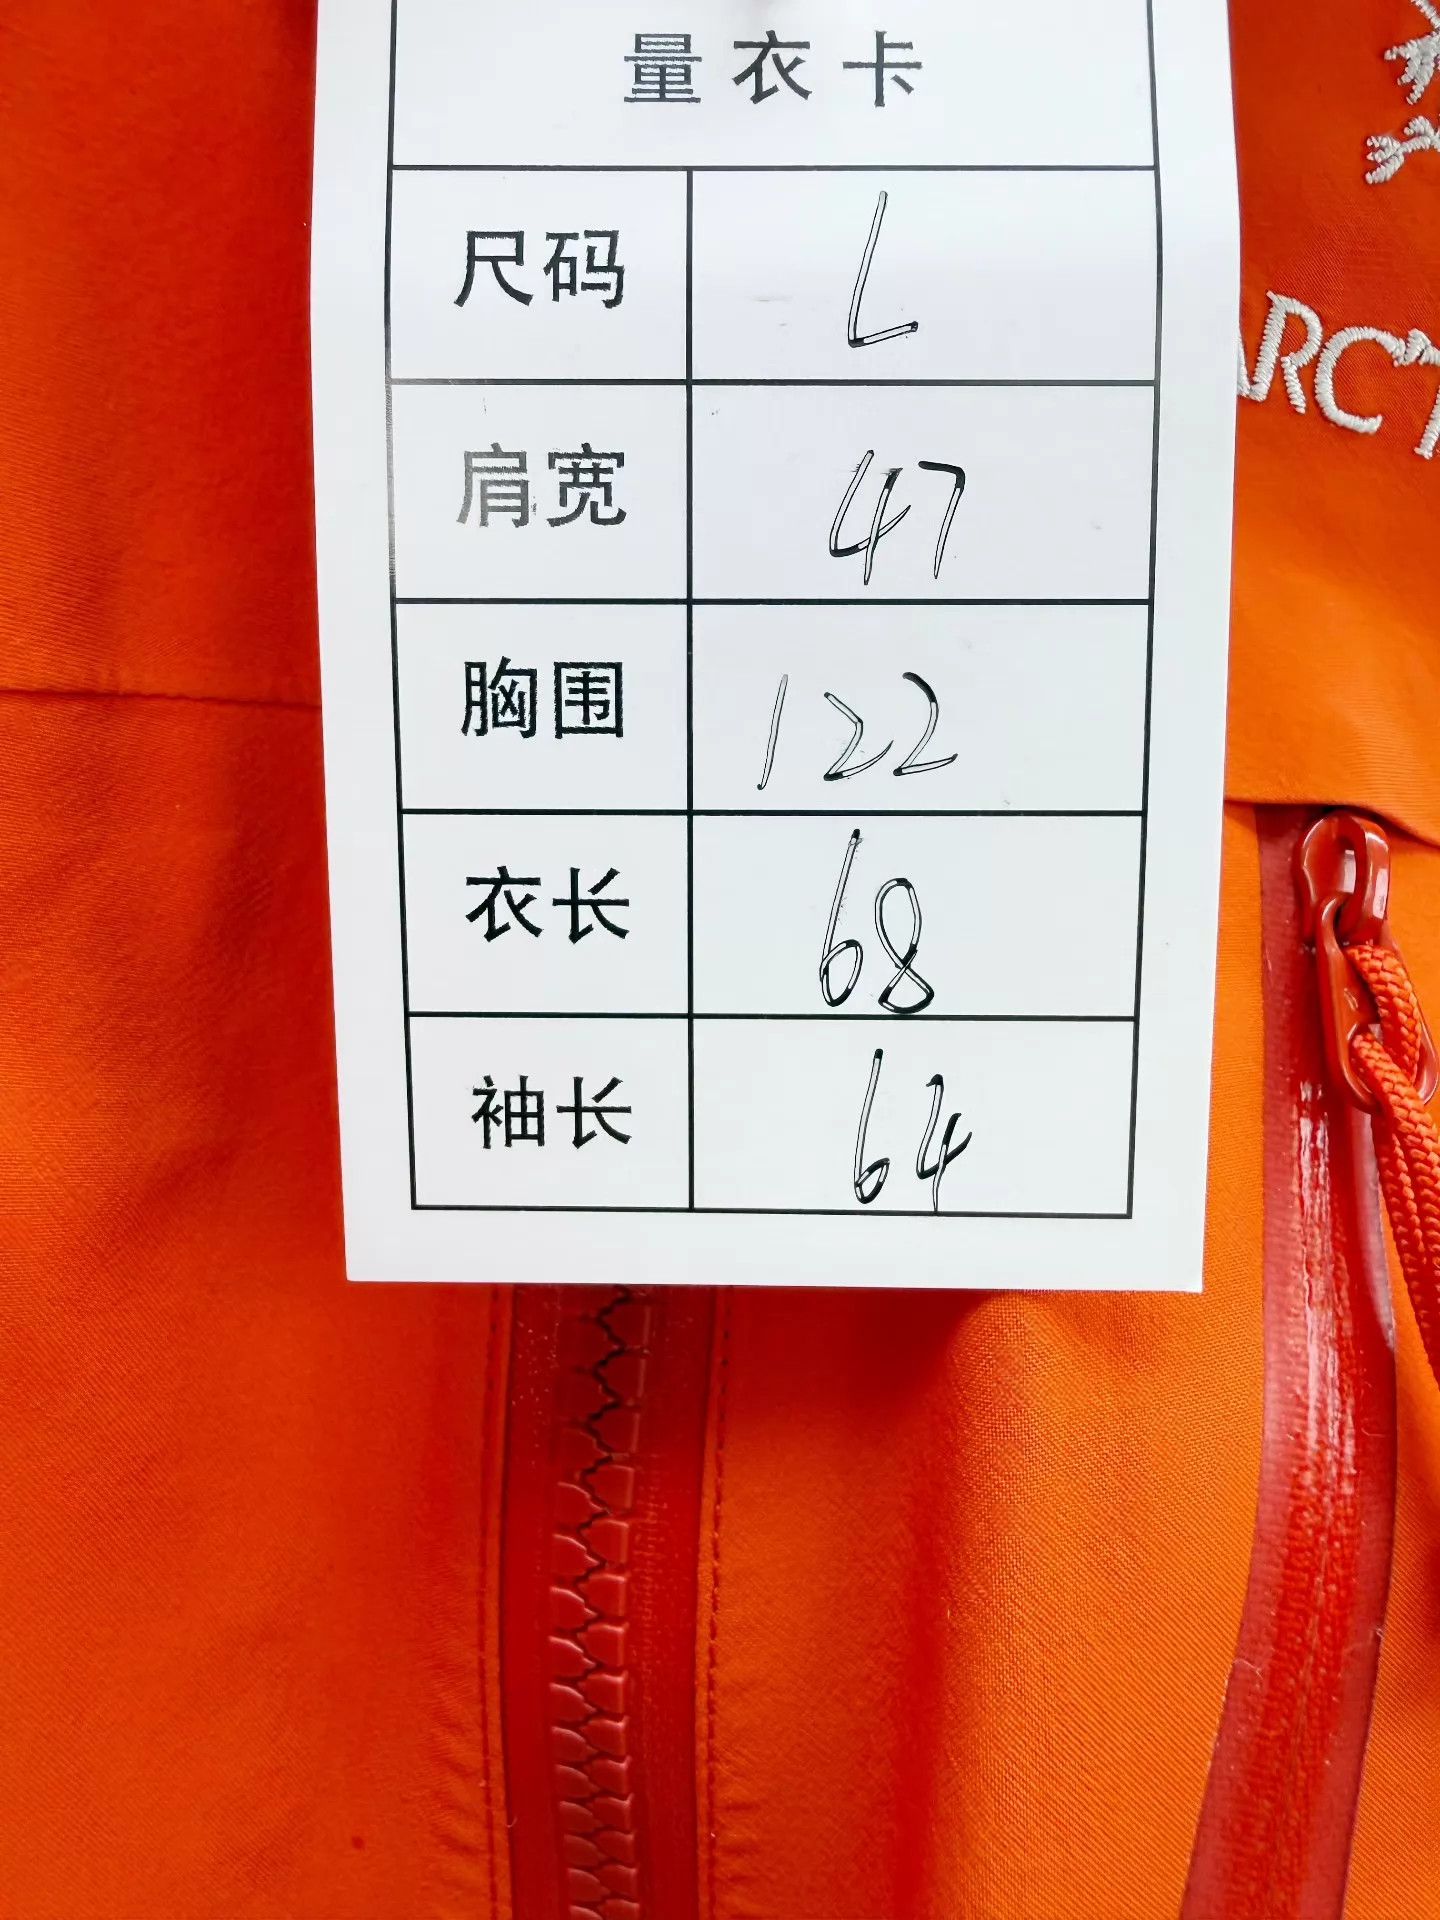 量衣卡
尺码 L
肩宽 47
胸围 122
衣长 68
袖长 64
ARCT